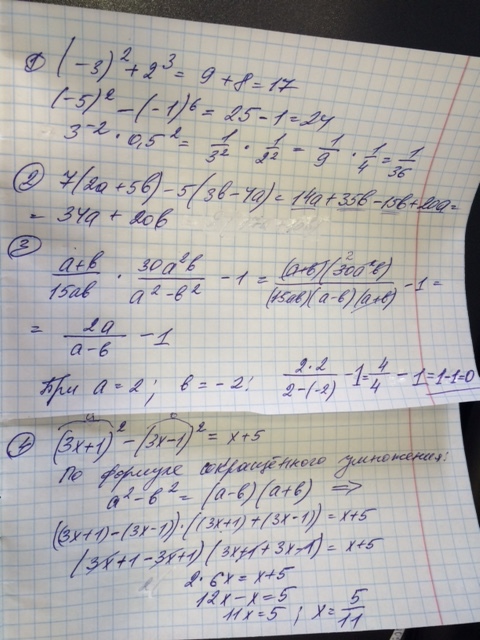 ① (-3)² + 2³ = 9 + 8 = 17
(-5)² - (-1)⁶ = 25 - 1 = 24
3⁻² · 0,5² = 1/3² · 1/2² = 1/9 · 1/4 = 1/36
② 7(2a + 5b) - 5(3b - 4a) = 14a + 35b - 15b + 20a =
= 34a + 20b
③ (a+b)/(15ab) · (30a²b)/(a² - b²) - 1 = ((a+b)(30a²b))/((15ab)(a-b)(a+b)) - 1 =
= 2a/(a-b) - 1
При a = 2; b = -2: (2·2)/(2-(-2)) - 1 = 4/4 - 1 = 1-1=0
④ (3x+1)² - (3x-1)² = x+5
По формуле сокращённого умножения:
a² - b² = (a-b)(a+b) ⟹
((3x+1) - (3x-1)) · ((3x+1) + (3x-1)) = x+5
(3x+1-3x+1)(3x+1+3x-1) = x+5
2·6x = x+5
12x - x = 5
11x = 5 ; x = 5/11